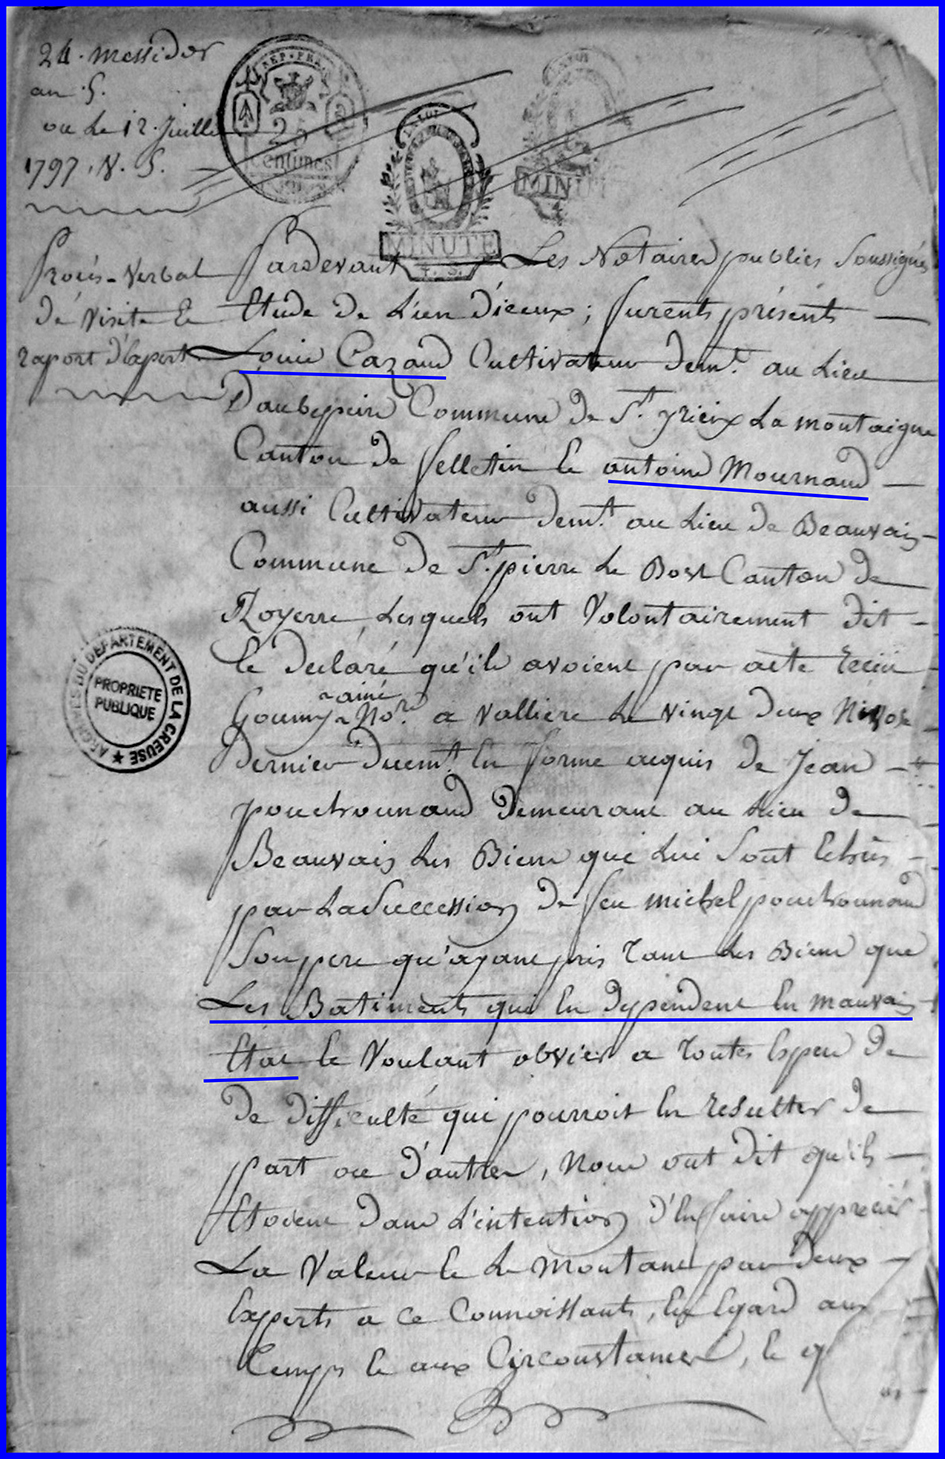 24. messidor
an 5.
ou le 12. Juillet
1797. V. S.
REP. FRA.
25
Centimes
MINUTE
MINUTE
Procès-Verbal
de visite et
raport d'expert
Pardevant Les Notaires publics soussignés
Etude de Lieu dieux; furent présents
Louis Cazaud Cultivateur demt. au Lieu
Daubepeire Commune de St. yrieix La montaigne
Canton de felletin et antoine Mournaud
aussi Cultivateur demt. au Lieu de Beauvais
Commune de St. pierre Le Bost Canton de
Royerre, Lesquels ont Volontairement dit
et declaré qu'ils avoient par acte recu
Goumy ainé Nore. a Valliere Le vingt deux Nivose
dernier duemt. En forme acquis de Jean
pouchounaud Demeurant au Lieu de
Beauvais Les Biens qui Lui sont Echus
par La Succession de feu michel pouchounaud
Son pere qu'ayant pris tant Les Biens que
Les Batiments qui En dependent En mauvais
Etat et Voulant obvier a toutes Espece de
de difficulté qui pourroit En resulter de
part ou d'autre, Nous ont dit qu'ils
Etoient dans L'intention d'En faire apprecier
La Valeur et Le Montant par deux
Experts a ce Connoissants, En Egard aux
temps et aux Circonstances, et q
ARCHIVES DU DEPARTEMENT DE LA CREUSE
PROPRIETE
PUBLIQUE